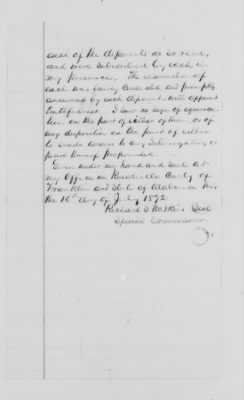 each of the deponents as so read,
and were subscribed by each in
my presence, The manner of
each was fair, Candid and promptly
answered by each deponent with apparent
truthfulness. I saw no sign of equivoca-
tion on the part of either of them or of
any disposition on the part of either
to evade answer to any Interrogatory or
part thereof propounded.
Given under my hand and seal at
my Office in Russellville County of
Franklin and State of Alabama this
the 16th day of July 1872
Richard S Watkins Seal
Special Commissioner